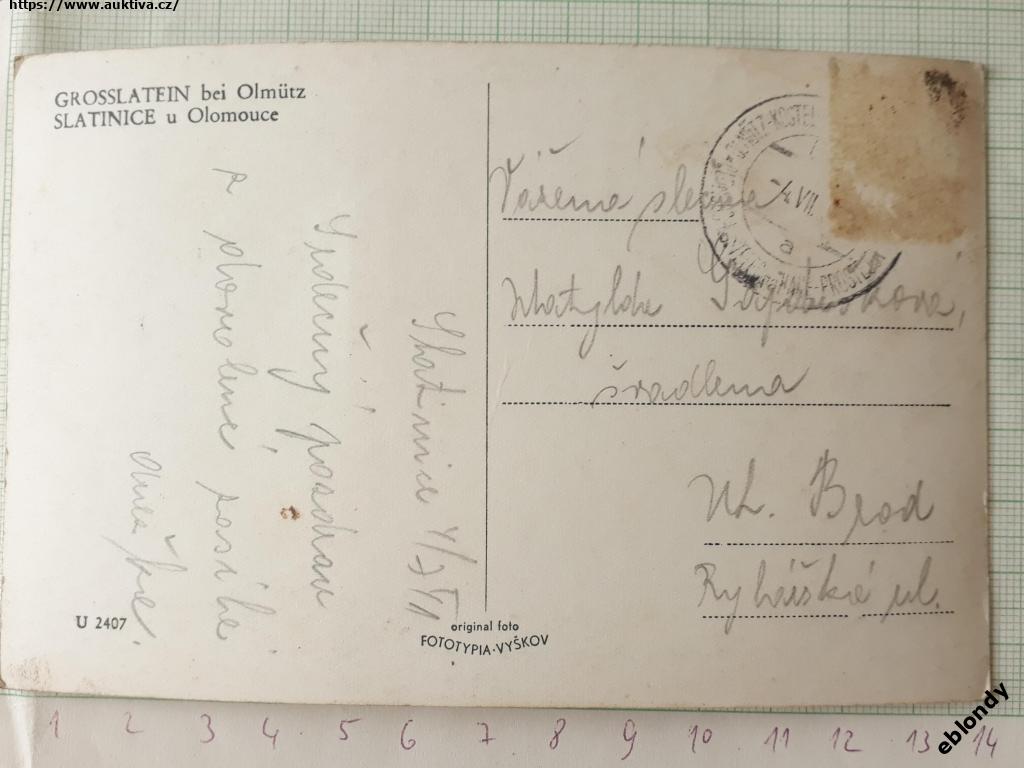 https://www.auktiva.cz/
GROSSLATEIN bei Olmütz
SLATINICE u Olomouce
Slatinice 4/7 41
Srdečný pozdrav
z dovolené zasílá
Vážená slečna
švadlena
Uh. Brod
ul.
U 2407
original foto
FOTOTYPIA-VYŠKOV
1 2 3 4 5 6 7 8 9 10 11 12 13 14
eblondy